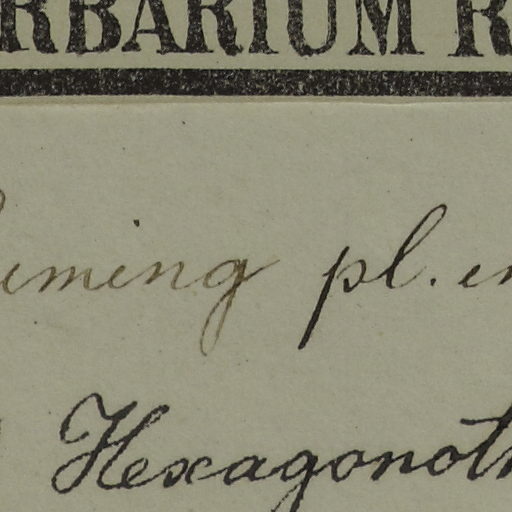 RBARIUM R
uming pl. in
Hexagonoth